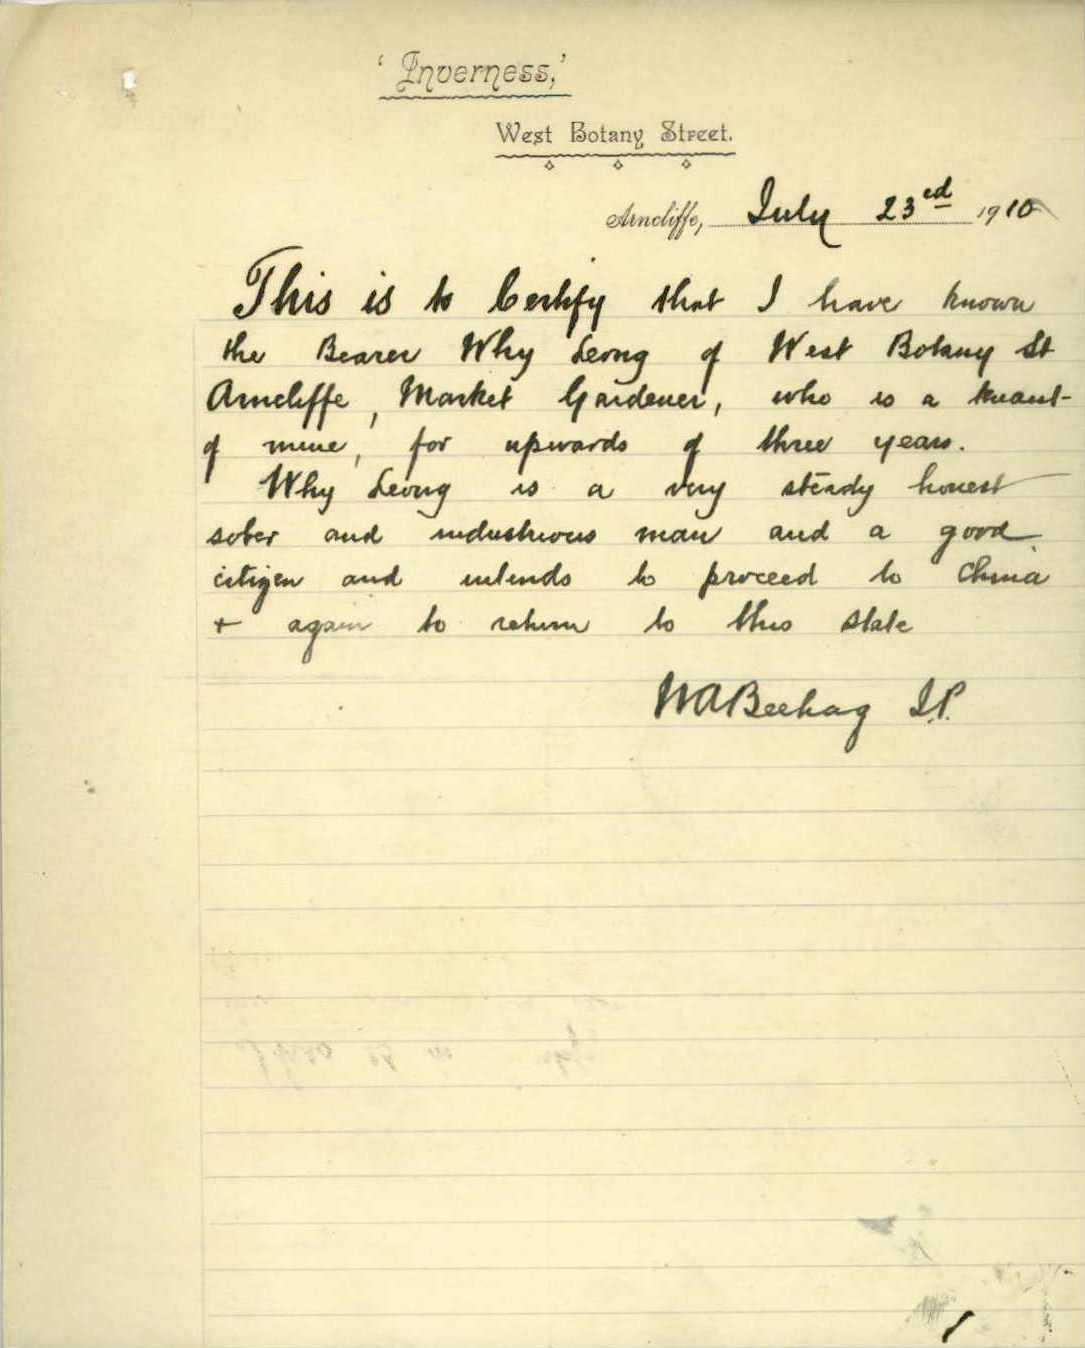 'Inverness,'
West Botany Street.
Arncliffe, July 23rd 1910
This is to Certify that I have known
the Bearer Why Leong of West Botany St
Arncliffe, Market Gardener, who is a tenant
of mine, for upwards of three years.
Why Leong is a very steady honest
sober and industrious man and a good
citizen and intends to proceed to China
+ again to return to this State
WABeehag J.P.